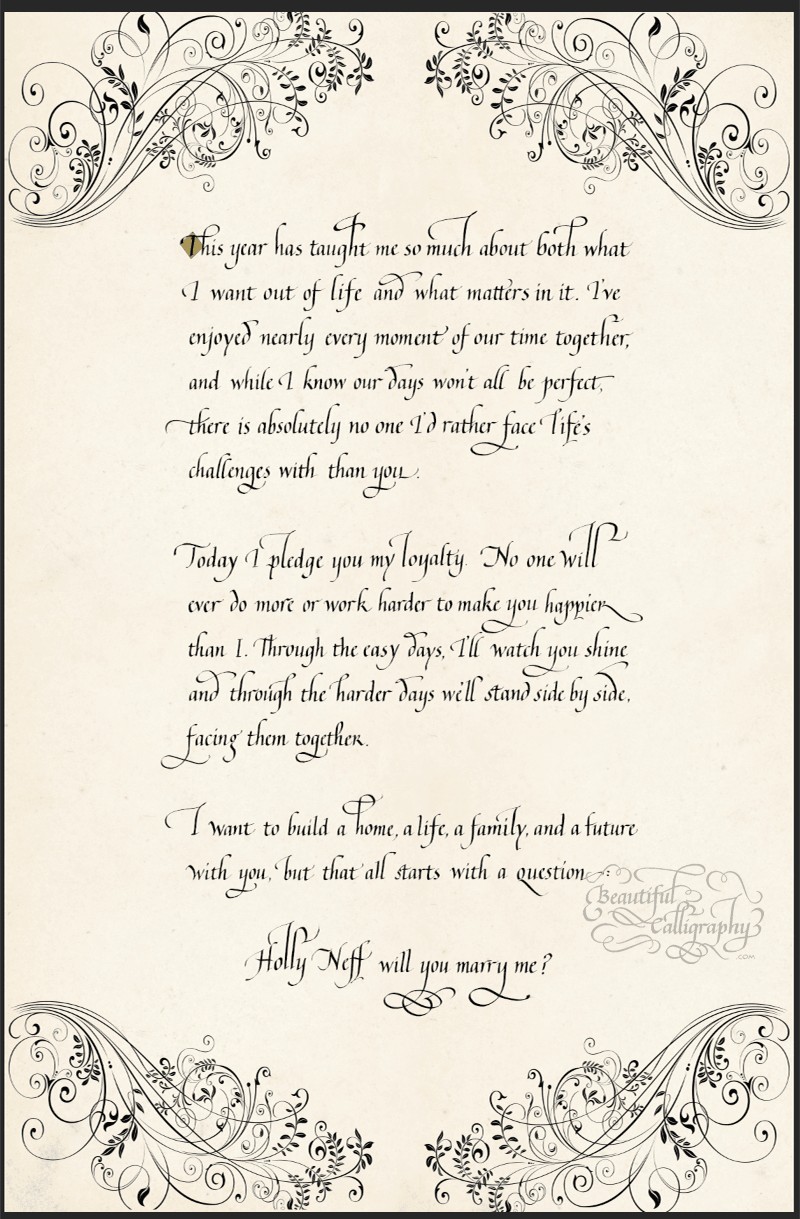 This year has taught me so much about both what
I want out of life and what matters in it. I've
enjoyed nearly every moment of our time together,
and while I know our days won't all be perfect,
there is absolutely no one I'd rather face life's
challenges with than you.
Today I pledge you my loyalty. No one will
ever do more or work harder to make you happier
than I. Through the easy days, I'll watch you shine
and through the harder days we'll stand side by side,
facing them together.
I want to build a home, a life, a family, and a future
with you, but that all starts with a question:
Beautiful
Calligraphy
.COM
Holly Neff will you marry me?